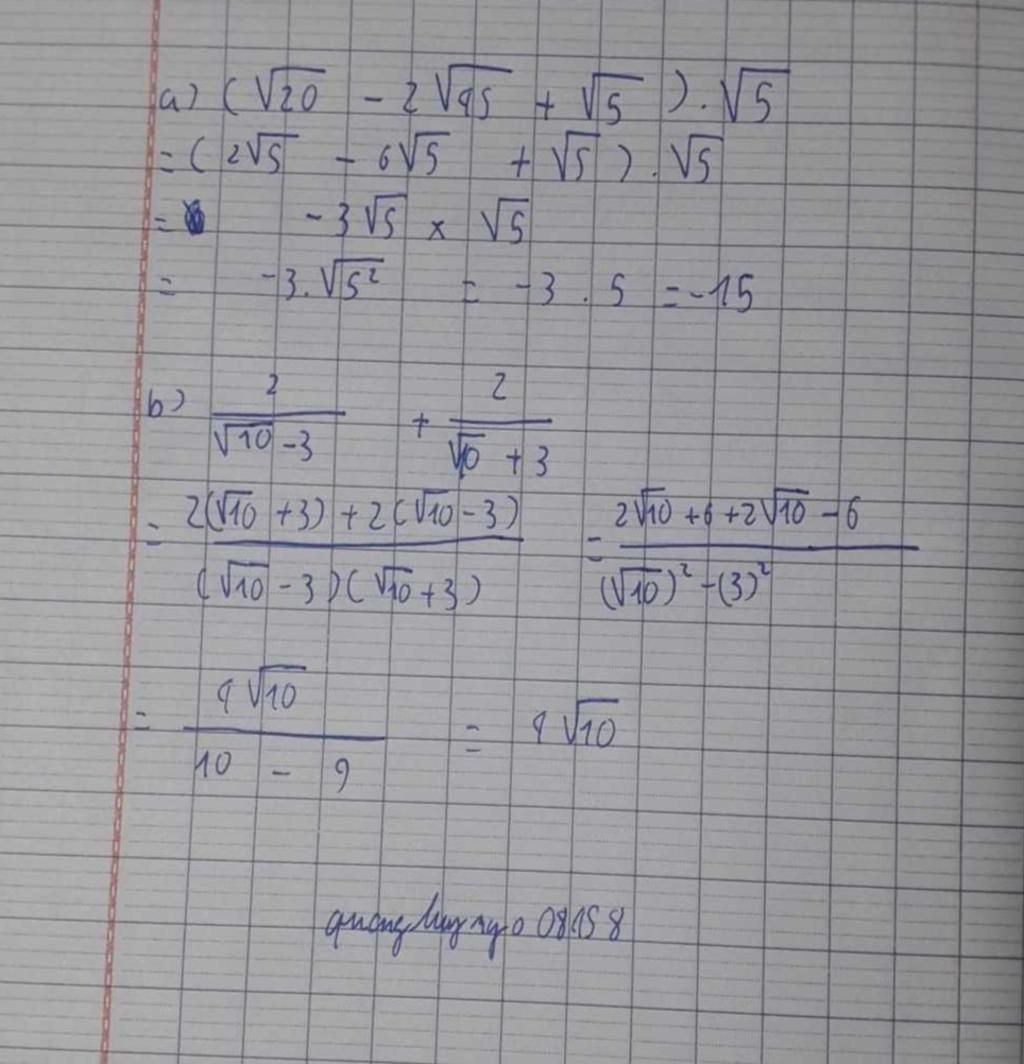 a) (√20 - 2√45 + √5 ) . √5
= ( 2√5 - 6√5 + √5 ) . √5
= -3√5 × √5
= -3.√5² = -3 . 5 = -15
b) 2/(√10 - 3) + 2/(√10 + 3)
= (2(√10 + 3) + 2(√10 - 3))/((√10 - 3)(√10 + 3)) = (2√10 + 6 + 2√10 - 6)/((√10)² - (3)²)
= 4√10/(10 - 9) = 4√10